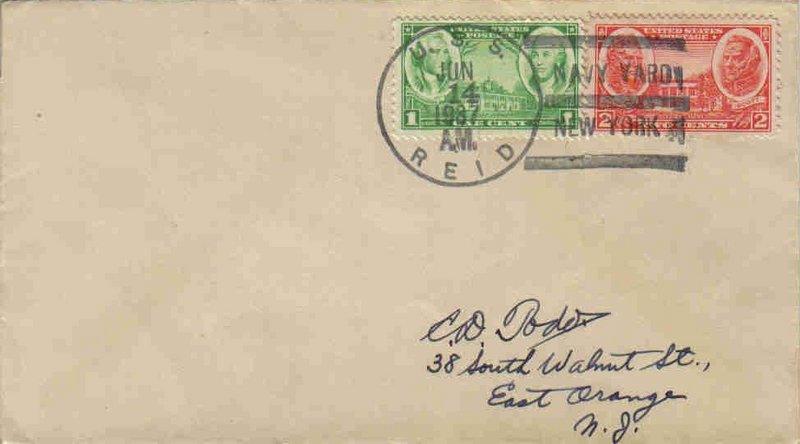 UNITED STATES
POSTAGE
1
1
UNITED STATES
POSTAGE
2
CENTS
2
U. S. S.
JUN
14
1937
A.M.
REID
NAVY YARD
NEW YORK
C.D.
38 South Walnut St.,
East Orange
N.J.